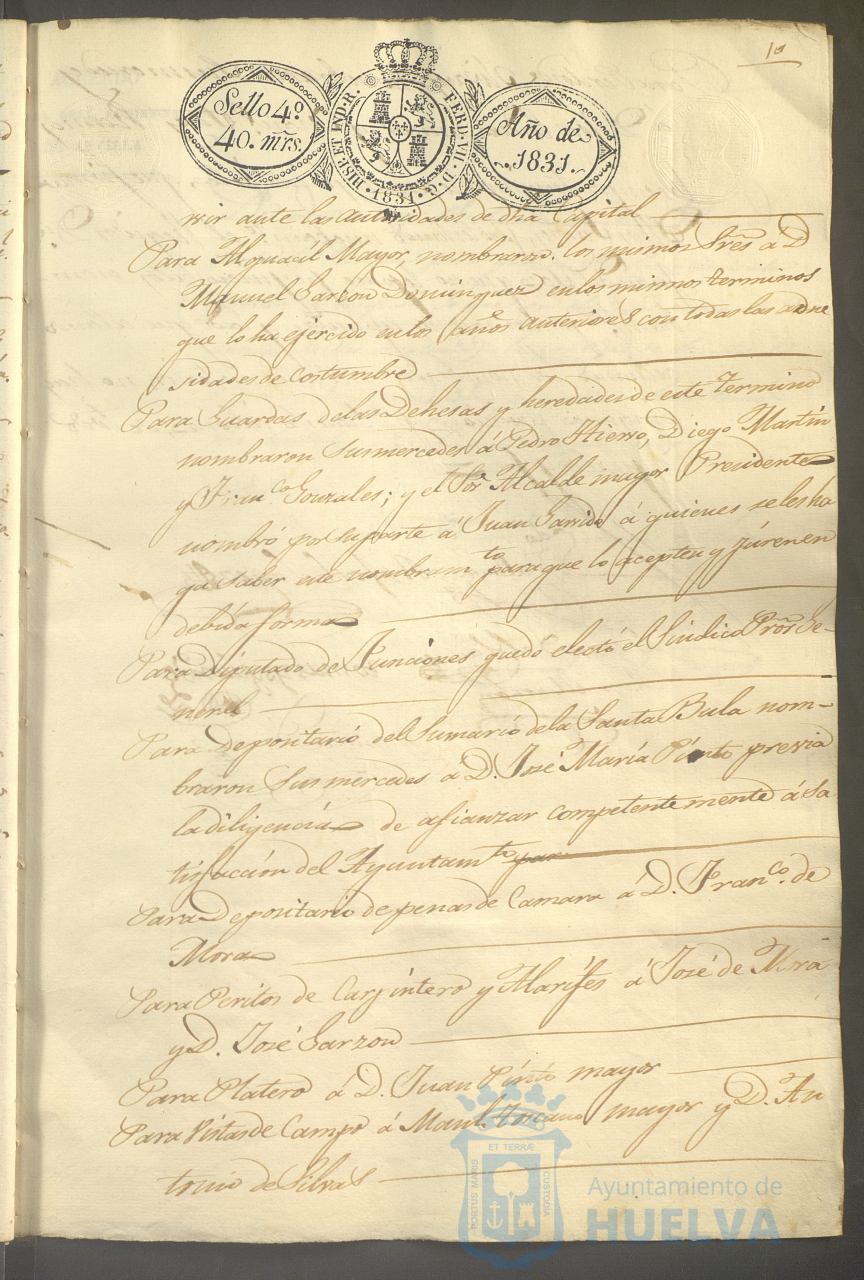 10
Sello 4º
40. mrs.
HISP. ET IND. R.
FERD. VII. D. G.
1831
Año de
1831.
rrir ante las autoridades de dha Capital
Para Alguacil Mayor, nombraron los mismos Sres a D
Manuel Garzon Dominguez en los mismos terminos
que lo ha ejercido en los años anteriores con todas las adne
sidades de costumbre
Para Guardas de las Dehesas y heredades de este termino
nombraron sus mercedes á Pedro Hierro, Diego Martin
y Franco Gonzales; y el Sor Alcalde mayor Presidente
nombró por su parte á Juan Garrido á quienes se les ha
ga saber este nombramto para que lo acepten y júren en
debida forma
Para Diputado de Funciones quedó electó el Sindico Pror Ge-
neral
Para Depositario del Sumario de la Santa Bula nom-
braron sus mercedes a D. José María Pinto previa
la diligencia de afianzar competentemente á sa
tisfacción del Ayuntamto
Para Depositario de penas de Camara á D. Franco. de
Mora
Para Peritos de Carpintero y Alarifes á José de Mora
y D. José Garzon
Para Platero á D. Juan Pinto mayor
Para Vistas de Campo á Manl. mayor y D. An
tonio de Silva
ET TERRÆ
PORTUS MARIS
CUSTODIA
Ayuntamiento de
HUELVA